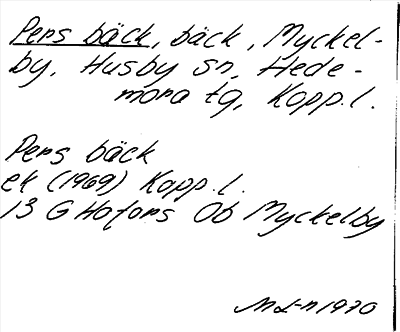 Pers bäck, bäck, Myckel-
by, Husby sn, Hede-
mora tg, Kopp.l.
Pers bäck
ek (1969) Kopp.l.
13 G Hofors Ob Myckelby
1970